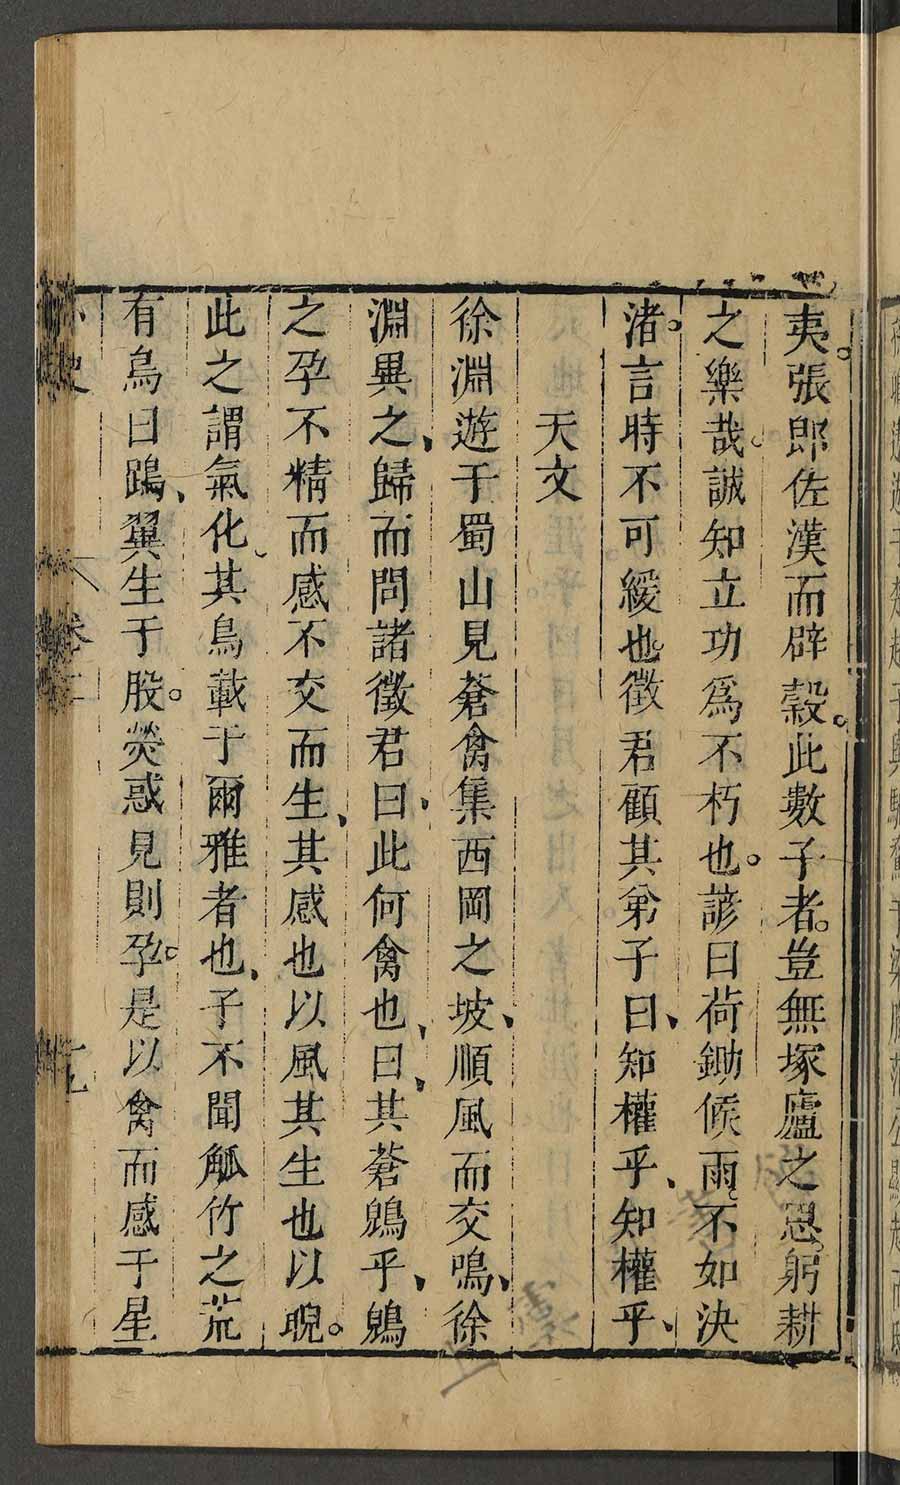 夷。張郎佐漢而辟穀。此數子者。豈無塚廬之思。躬耕
之樂哉。誠知立功爲不朽也。諺曰荷鋤候雨。不如決
渚。言時不可緩也。徵君顧其弟子曰、知權乎、知權乎、
天文
徐淵遊于蜀山見蒼禽集西岡之坡、順風而交鳴、徐
淵異之、歸而問諸徵君曰、此何禽也、曰、其蒼鶂乎、鶂
之孕不精而感不交而生、其感也以風其生也以睨。
此之謂氣化、其鳥載于爾雅者也、子不聞觚竹之荒
有鳥曰鵎、翼生于股。熒惑見則孕。是以禽而感于星
卷二